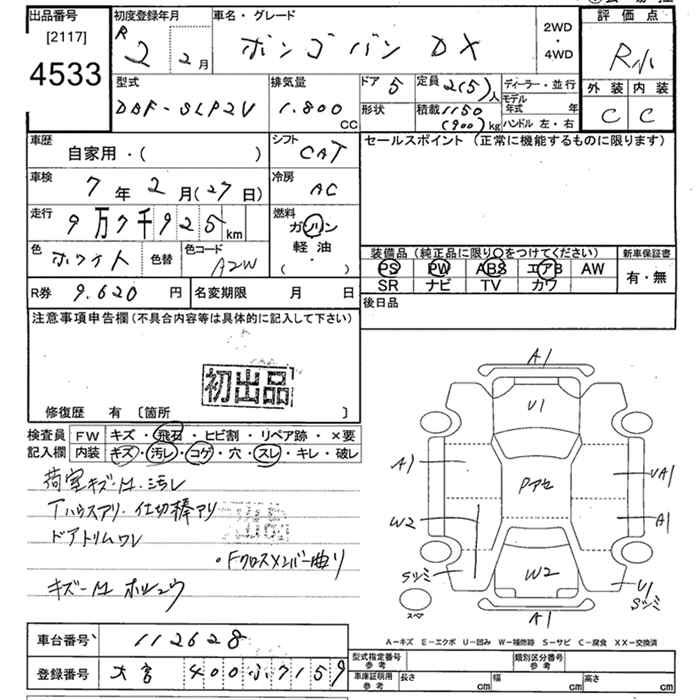 出品番号
[2117]
4533
初度登録年月
R 2 2月
車名・グレード
ボンゴバン DX
2WD
・
4WD
評価点
R小
外装 内装
C C
型式
DBF-SLP2V
排気量
1.800
CC
ドア 5
形状
定員 2(5)人
積載 1150
(900)kg
ディーラー・並行
モデル年式 年
ハンドル 左・右
車歴
自家用・( )
シフト
CAT
セールスポイント (正常に機能するものに限ります)
車検
7年2月(27日)
冷房
AC
走行
9万7千925km
燃料
ガソリン
軽油
( )
色
ホワイト
色替
色コード
A2W
装備品 (純正品に限り〇をつけてください)
新車保証書
PS PW ABS エアB AW
SR ナビ TV カワ
有・無
R券 9.620円
名変期限 月 日
後日品
注意事項申告欄(不具合内容等は具体的に記入して下さい)
初出品
修復歴 有 [箇所 ]
検査員
記入欄
FW キズ・飛石・ヒビ割・リペア跡・×要
内装 キズ・汚レ・コゲ・穴・スレ・キレ・破レ
荷室キズ-H.汚レ
Tハウスアリ.仕切棒アリ
ドアトリムワレ
・Fクロスメンバー曲リ
キズ-H ホシュウ
A1
U1
A1
Pアセ
UA1
W2
A1
Sツミ
W2
U1
Sツミ
スペア
A1
A-キズ E-エクボ U-凹み W-補修跡 S-サビ C-腐食 XX-交換済
車台番号 112628
登録番号 大宮 400 ふ 7159
型式指定番号
参考
類別区分番号
参考
車庫証明用
参考
長さ cm
幅 cm
高さ cm